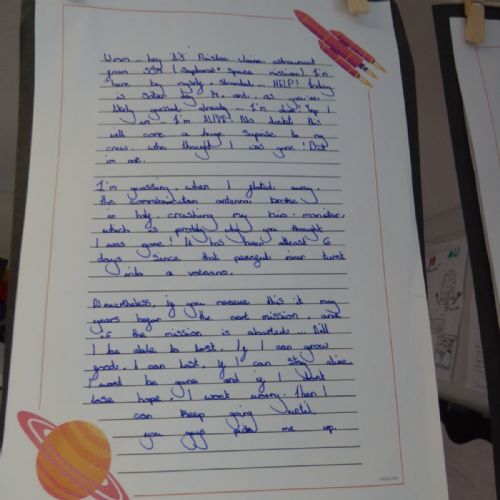 Umm... hey it's Jane, astronaut
from SSM ( Space mission). I'm
here by myself, stranded... HELP! Today
is as you've
likely guessed already... I'm ! Yep I
I'm ALIVE! No doubt this
will come a huge suprise to my
crew, who thought I was gone! But
im not.
I'm guessing, when I floated away,
the communication antenna broke
in half, crashing my bio-monitor,
which is probly why you thought
I was gone! It has been atleast 6
days since that peacful river turnt
into a volcano.
Nevertheless, if you receve this it may
years began the next mission, and
if the mission is aborted... Will
I be able to last, If I can grow
food, I can last, if I can stay alive
I wont be gone and if I dont
lose hope, I wont worry. Then I
can keep going until
you guys pick me up.